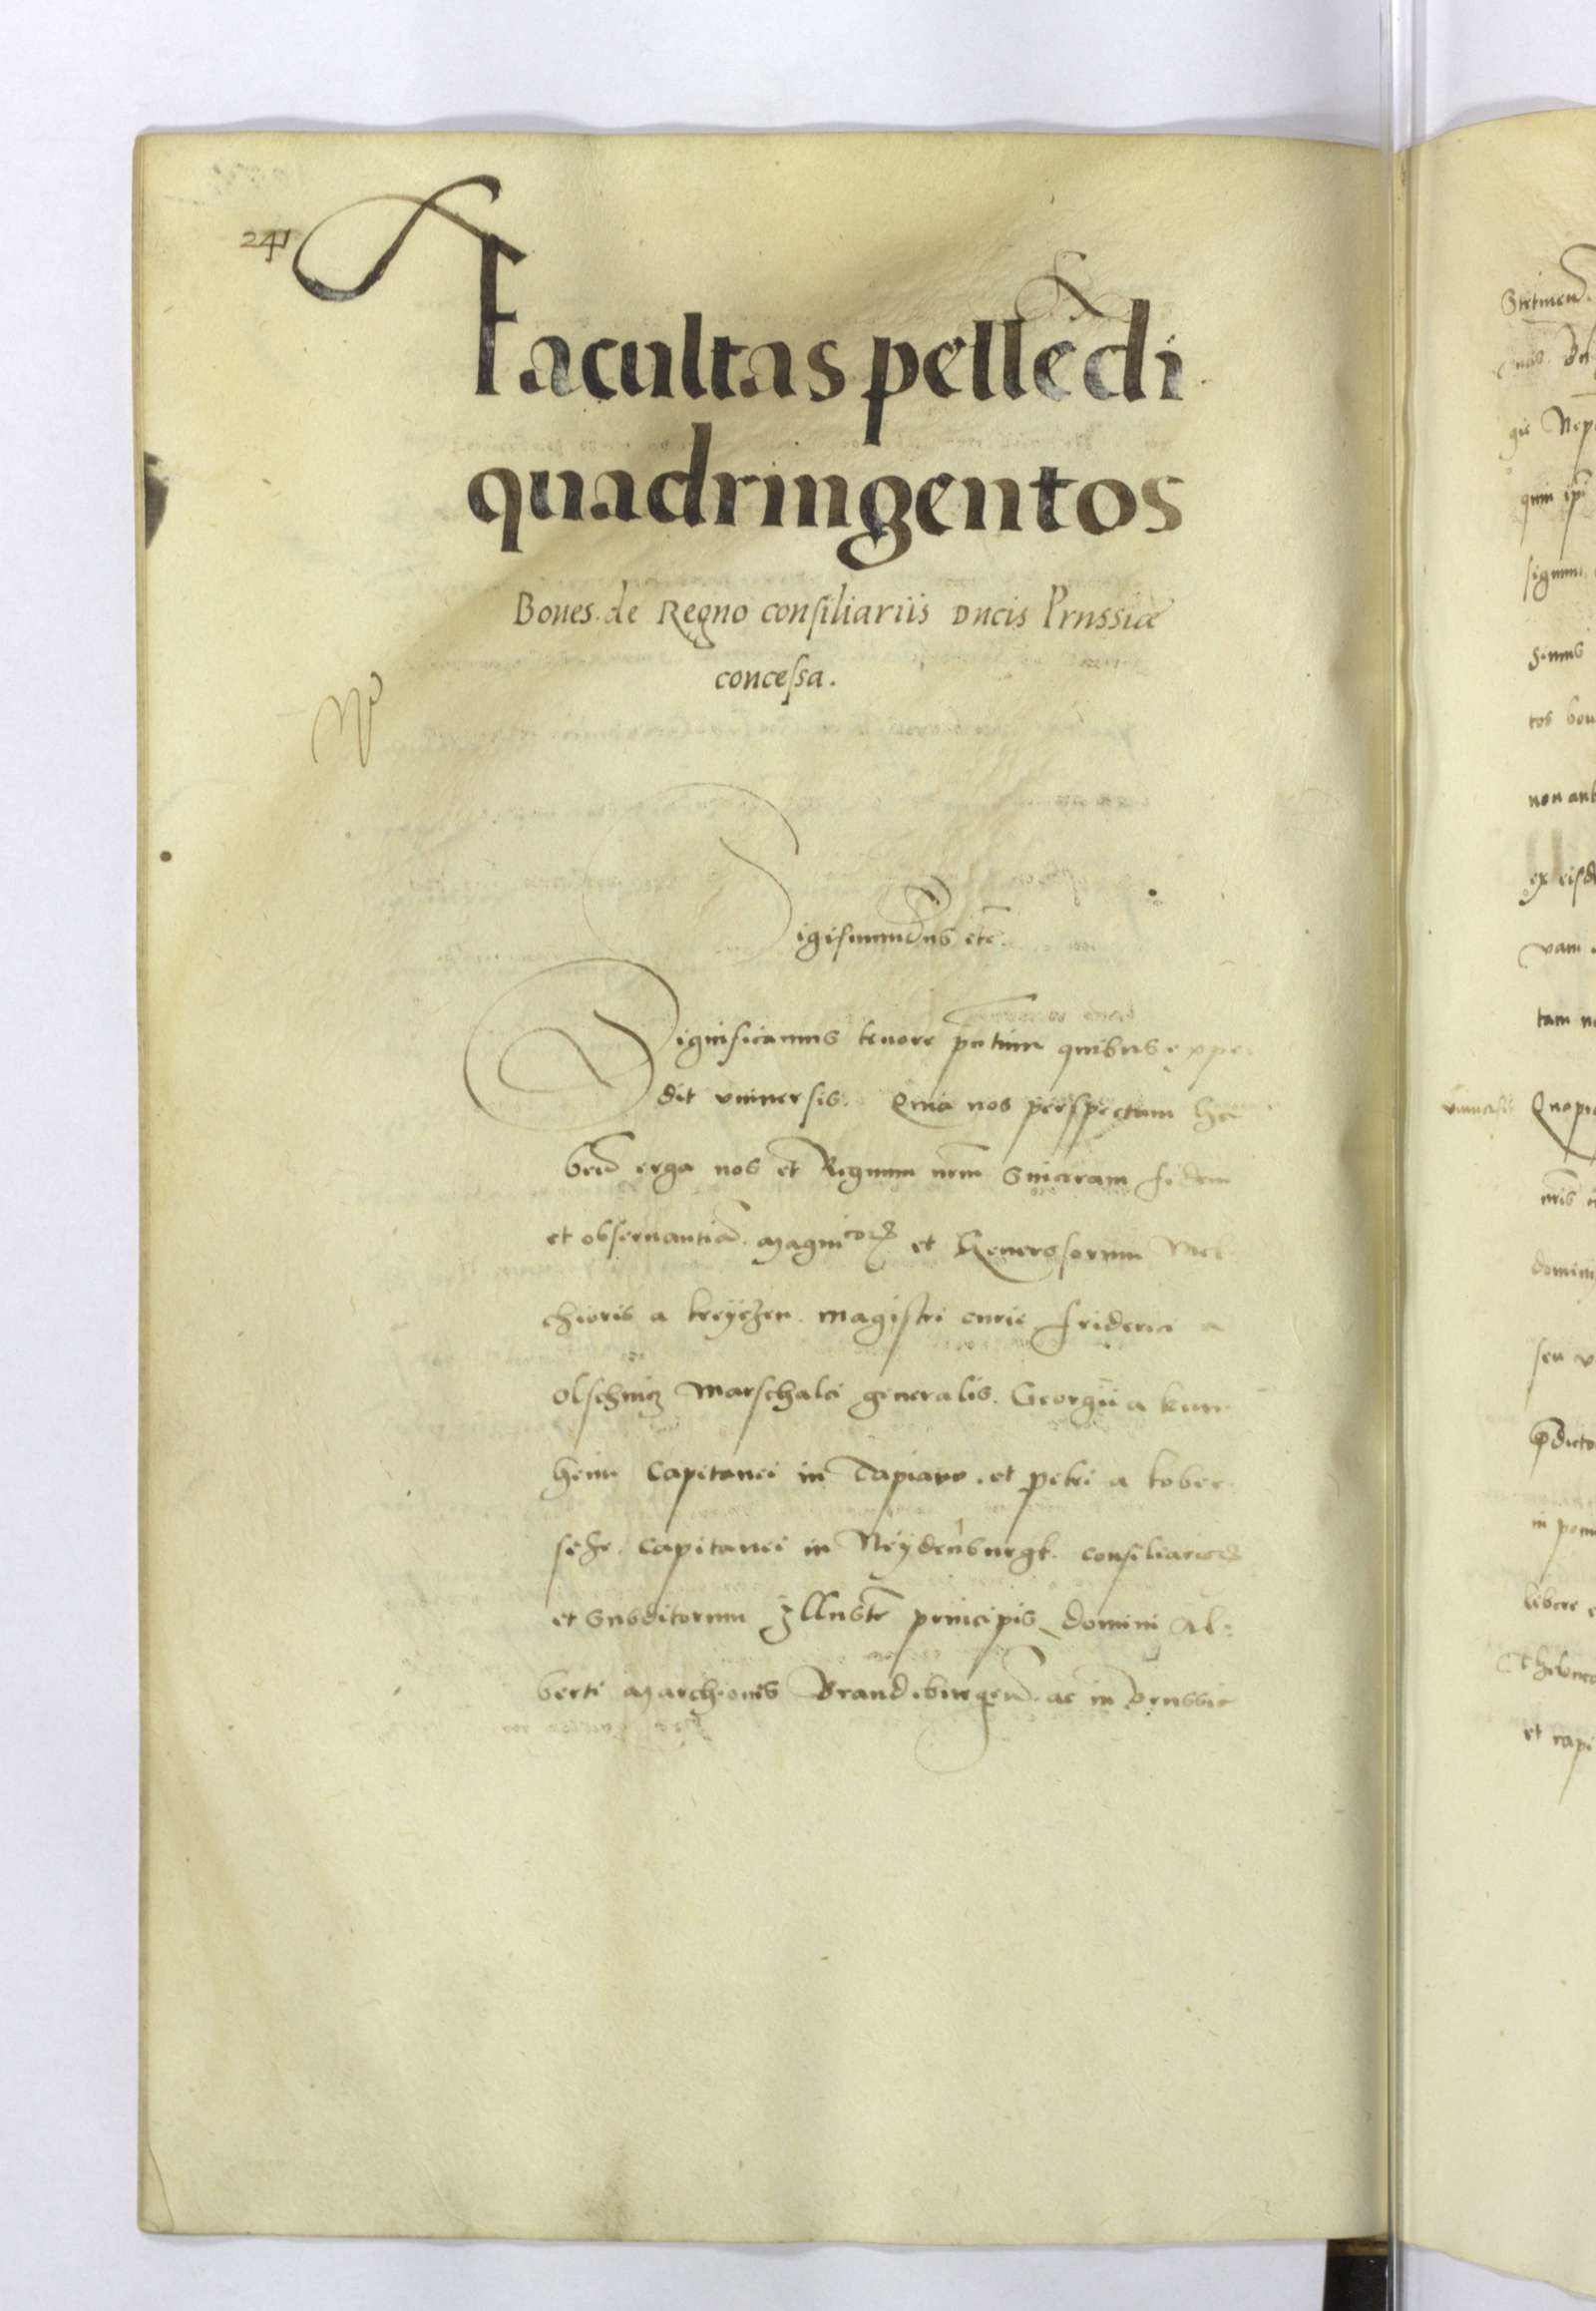 241
Facultas pellēdi
quadringentos
Boues de Regno consiliariis Ducis Prussiæ
concessa.
Sigismundus etc̄.
Significamus tenore pn̄tium quibus expe
dit vniuersis. Quia nos perspectam ha
ben̄ erga nos et Regnum nr̄m sinceram fidem
et obseruantiā. magnicoꝝ et Generosorum Mel
chioris a kreyczen. magistri curie friderici a
olschnicz Marschalci generalis. Georgii a kun
heim Capitanei in Tapiaw. et petri a kober
sehe. capitanei in Neydenburgk. consiliarioꝝ
et subditorum Illustr̄ principis domini Al:
berti marchionis Brandeburgen̄. ac in Prussie
Stetinen̄.
tos bou
non aut
ex eisd
vam
tam n
vniuersis
domini
seu v
libere
et capi